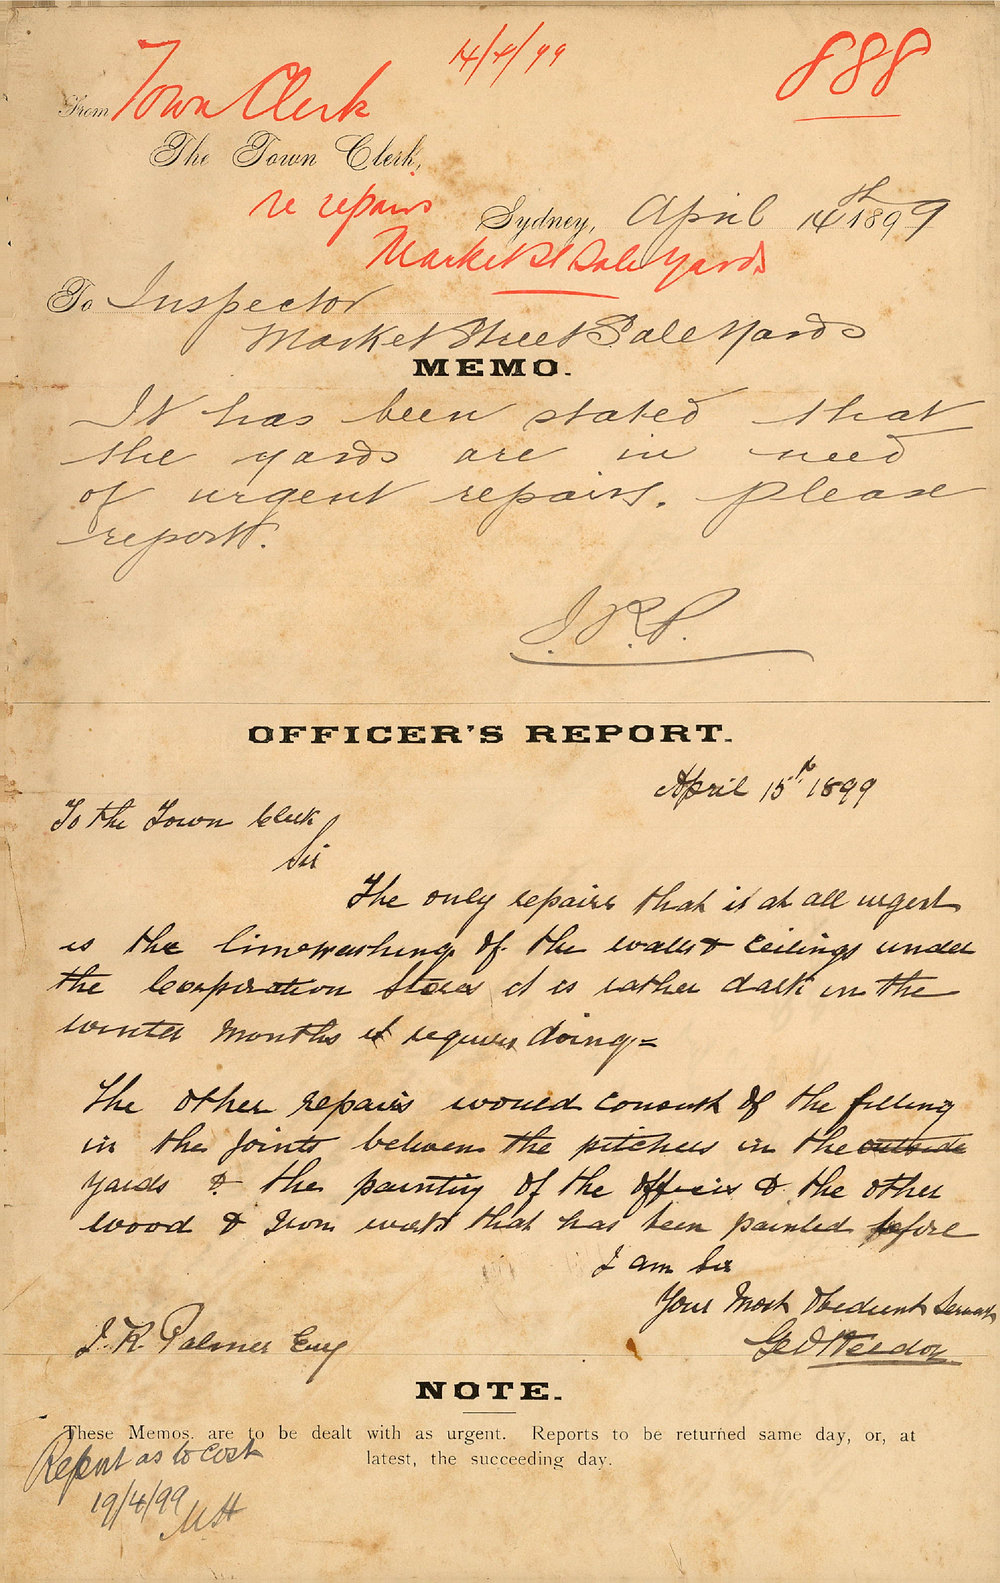 14/4/99
888
From Town Clerk
The Town Clerk,
re repairs
Sydney, April 14th 1899
Market St Sale Yards
To Inspector
Market Street Sale Yards
MEMO.
It has been stated that
the yards are in need
of urgent repairs. please
report.
J.R.P.
OFFICER'S REPORT.
April 15th 1899
To the Town Clerk
Sir
The only repairs that is at all urgent
is the limewashing of the walls & ceilings under
the Corporation Stores it is rather dark in the
winter months it requires doing=
The other repairs would consist of the filling
in the joints between the pitchers in the outside
yards & the painting of the offices & the other
wood & Iron work that has been painted before
I am Sir
Your Most Obedient Servant
Geo
J. R. Palmer Esq
NOTE.
These Memos. are to be dealt with as urgent. Reports to be returned same day, or, at
latest, the succeeding day.
Report as to cost
19/4/99